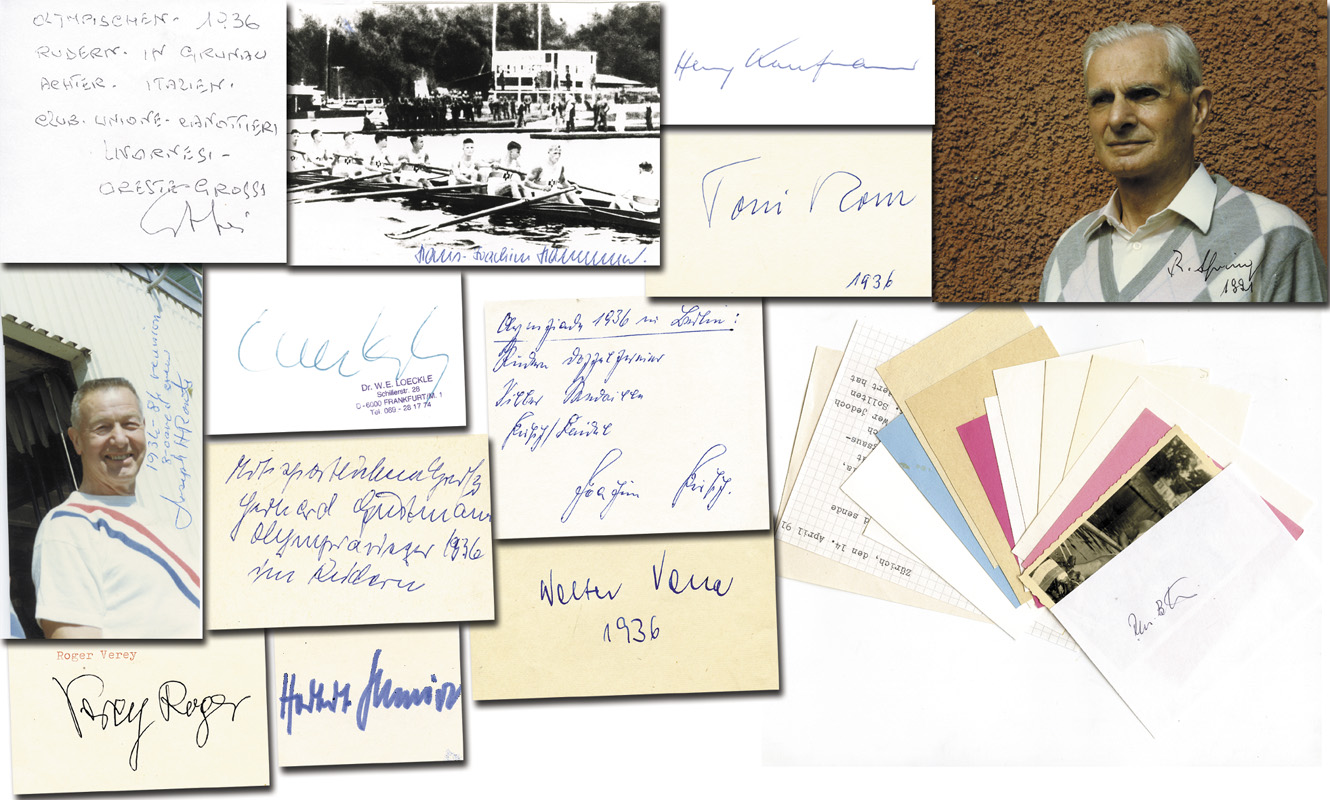 OLYMPISCHEN - 1936
RUDERN - IN GRUNAU
ACHTER - ITALIEN -
CLUB - UNIONE - CANOTTIERI
LIVORNESI -
ORESTE - GROSSI
Hans-Joachim Hannemann
Henry Kaufmann
Toni Rom
1936
R. Spring
1991
1936-86 reunion
8-oared crew
Joseph H Rantz
Dr. W.E. LOECKLE
Schillerstr. 28
D-6000 FRANKFURT/M. 1
Tel. 069 - 28 17 74
Olympiade 1936 in Berlin:
Rudern Doppelzweier
Silber Medaille
Pirsch/Kaidel
Joachim Pirsch.
Mit sportlichem Gruß
Gerhard Gustmann
Olympiasieger 1936
im Rudern
Walter
1936
Roger Verey
Verey Roger
Herbert
wer jedoch
Sollten
ert hat
d sende
Zürich, den 14. April 91